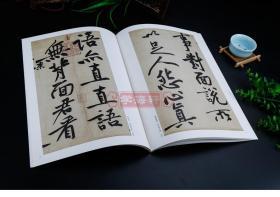 事對面說所
以足人怨心真
語亦直直語
無背面君看